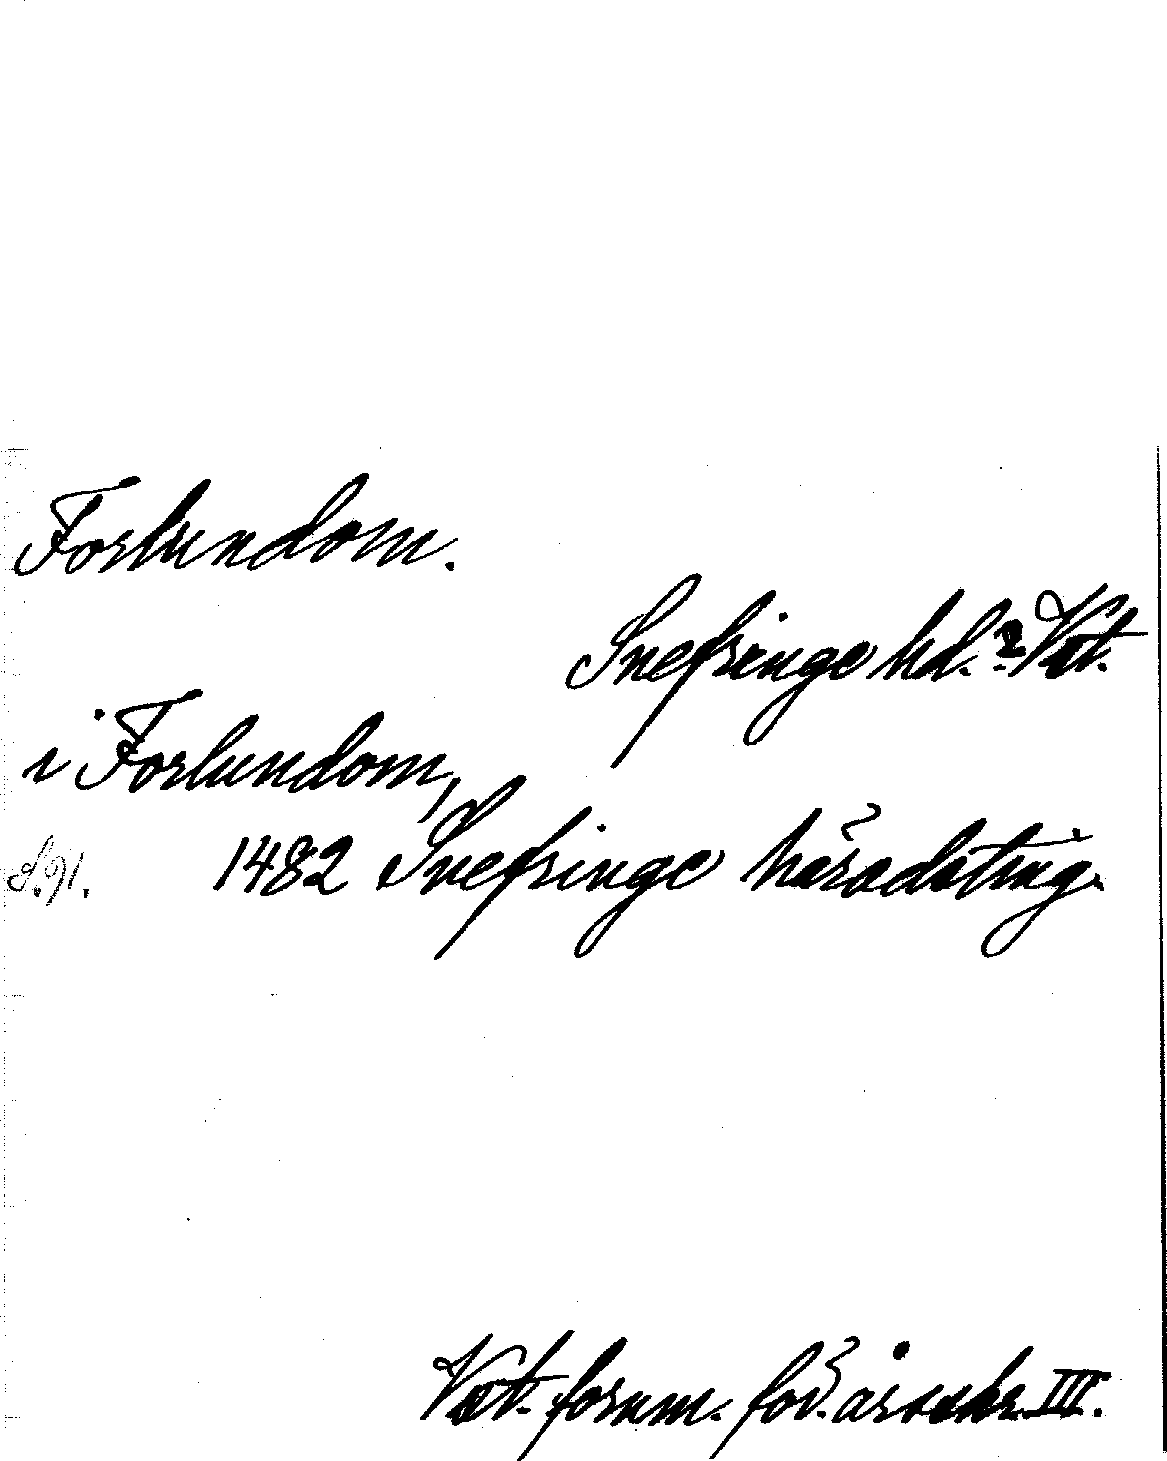 Forlundom.
Snefringe hd.? Vst.
i Forlundom,
S. 91. 1482 Snefringe häradsting.
Vst. fornm. för. årsskr. III.